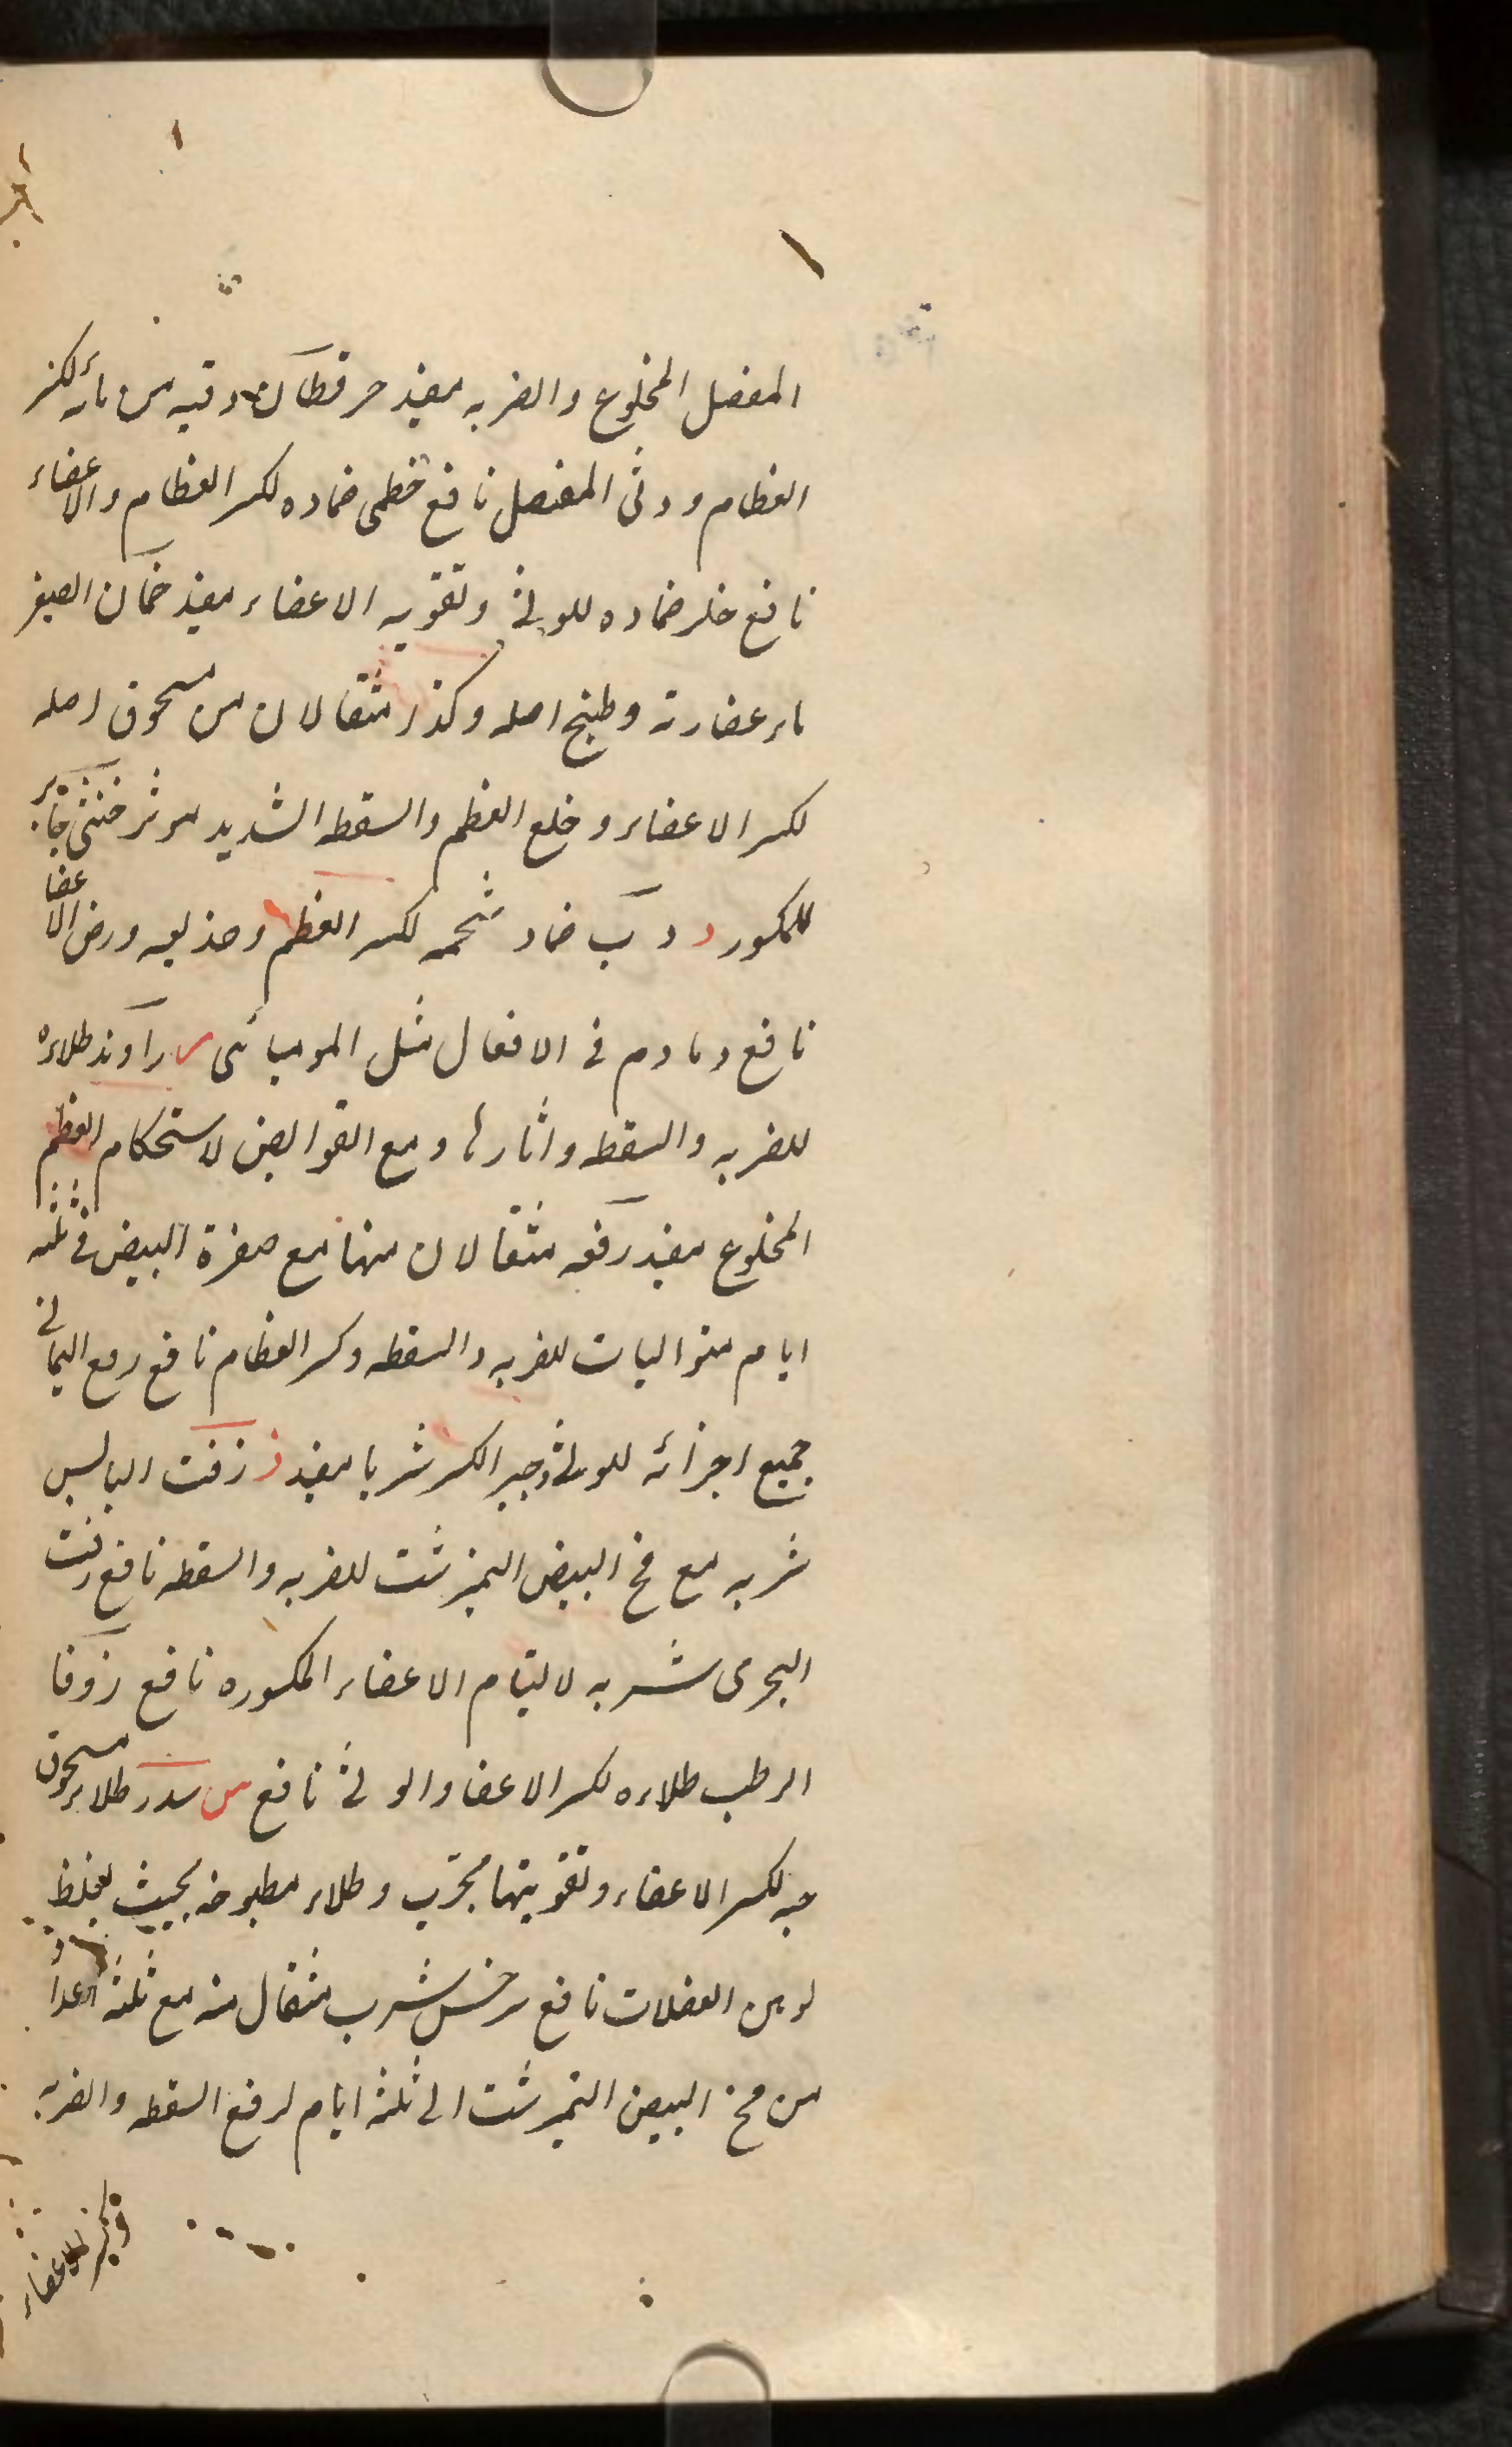 المفصل المخلوع والضربه مفيد حرقطان وقيه من مائه لكسر
العظام ووثى المفصل نافع خطمى ضماده لكسر العظام والاعضاء
نافع خلر ضماده للوثى وتقويه الاعضاء مفيد خمان الصغير
ماء عصارته وطبخ اصله وكذا مثقالان من مسحوق اصله
لكسر الاعضاء وخلع العظم والسقطه الشديد موثر خنثى جابر
للمكسور د دب ضماد شحمه لكسر العظم وصدعه ورض الاعضا
نافع دمادم فى الافعال مثل الموميائى ر راوند طلاءه
للضربه والسقطه واثارها ومع القوابض لاستحكام العظم
المخلوع مفيد رقعه مثقالان منها مع صفرة البيض فى ثلثه
ايام متواليات للضربه والسقطه وكسر العظام نافع رمع اليمانى
جميع اجزائه للوثى وجبر الكسر شربا مفيد ز زفت اليابس
شربه مع مخ البيض النيمرشت للضربه والسقطه نافع زفت
البحرى شربه لالتيام الاعضاء المكسوره نافع زوفا
الرطب طلاءه لكسر الاعضا والوثى نافع س سدر طلاء مسحوق
حبه لكسر الاعضاء وتقويتها مجرب وطلاء مطبوخه بحيث يغلظ
لوهن العضلات نافع سرخس شرب مثقال منه مع ثلثه اعداد
من مخ البيض النيمرشت الى ثلثه ايام لرفع السقطه والضربه
وكسر الاعضاء